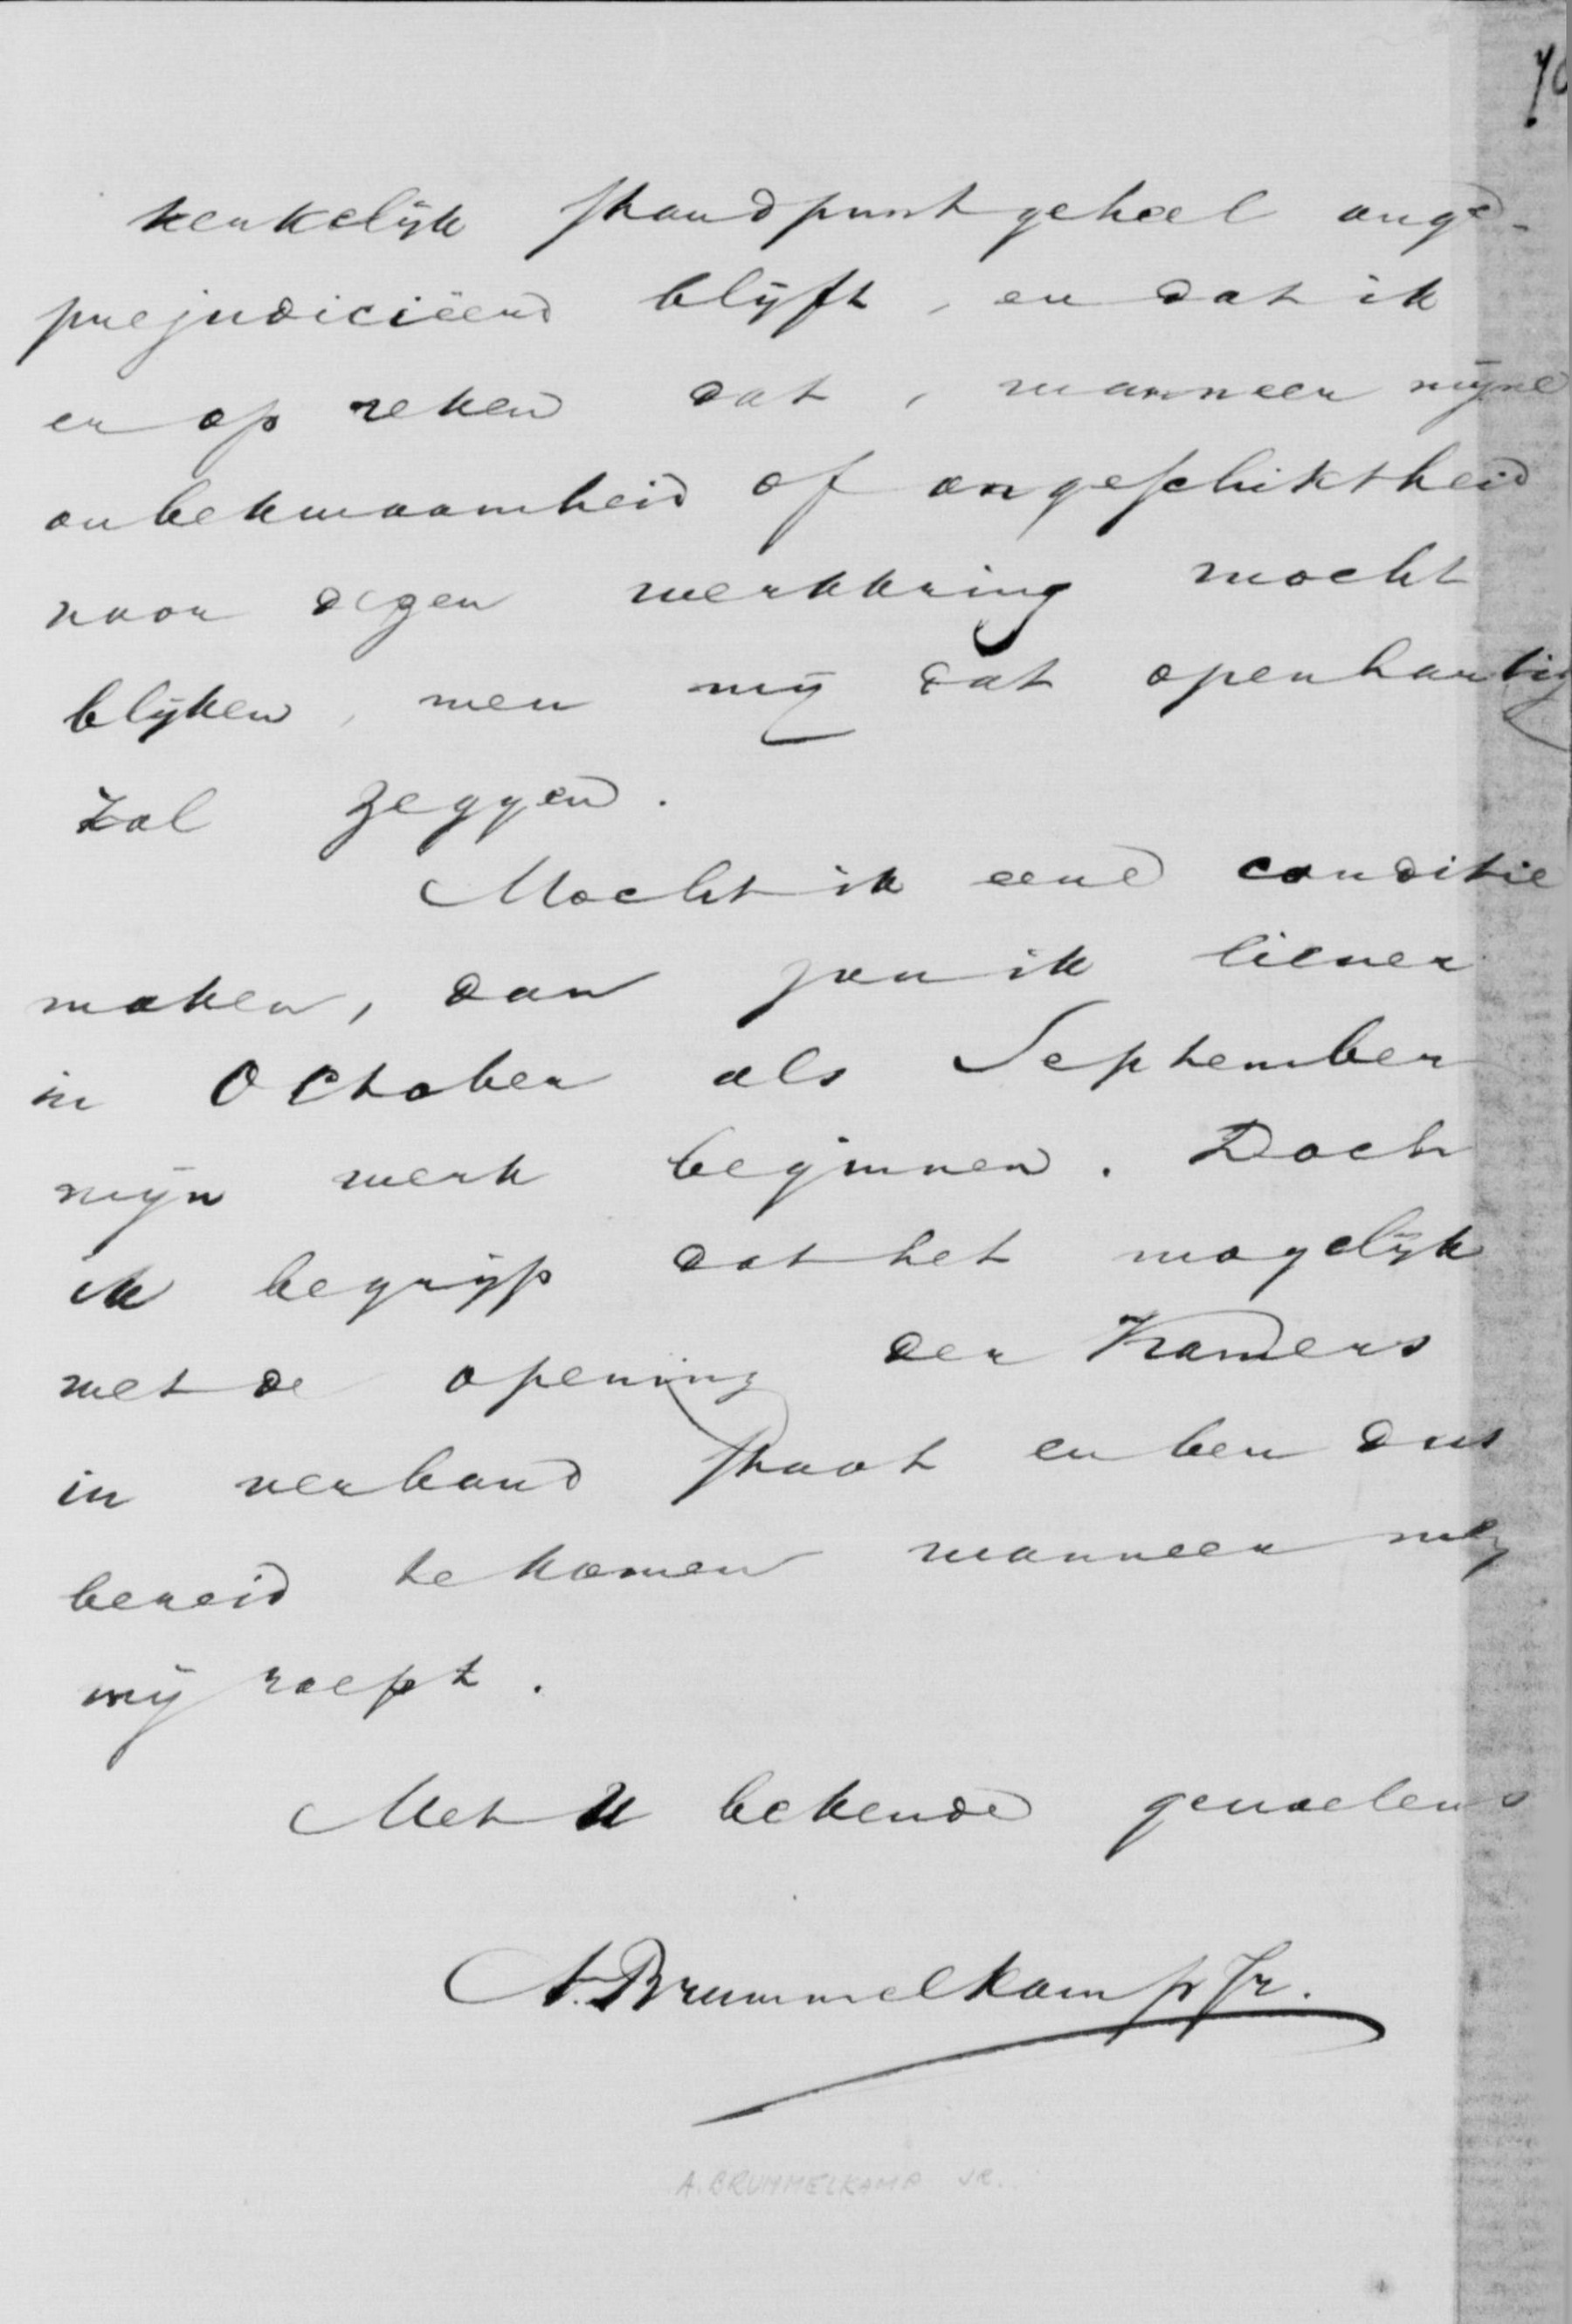 kerkelijk standpunt geheel onge-
prejudiciëerd blijft, en dat ik
er op reken dat, wanneer mijne
onbekwaamheid of ongeschiktheid
voor dezen werkkring mocht
blijken, men mij dat openhartig
zal zeggen.
Mocht ik eene conditie
maken, dan zou ik liever
in October als September
mijn werk beginnen. Doch
ik begrijp dat het mogelijk
met de opening der Kamers
in verband staat en ben dus
bereid te komen wanneer
mij roept.
Met U bekende gevoelens
A. Brummelkamp Jr.
A. BRUMMELKAMP JR.